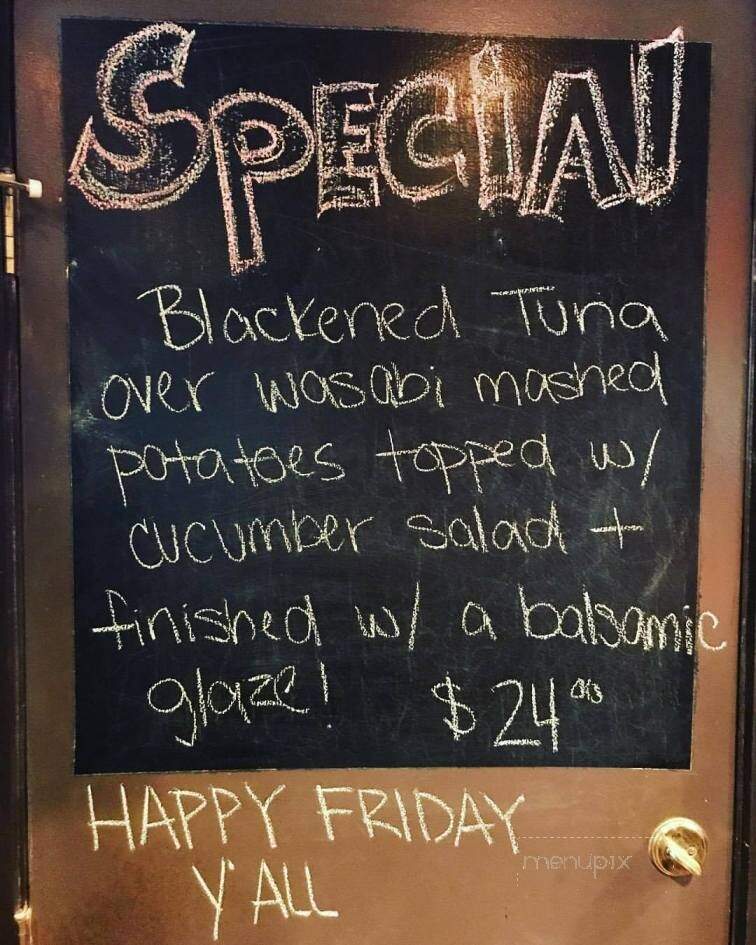 SPECIAL
Blackened Tuna
over wasabi mashed
potatoes topped w/
cucumber salad +
finished w/ a balsamic
glaze! $24.00
HAPPY FRIDAY
Y'ALL
menupix